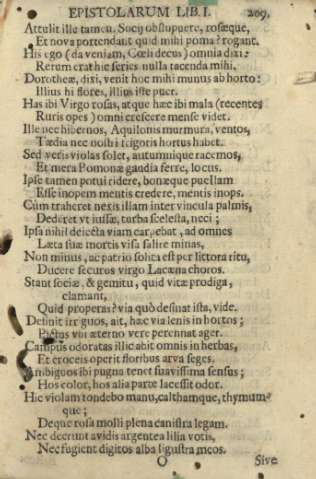 EPISTOLARUM LIB. I. 209.
Attulit ille tamen. Socij obstupuere, rosæque,
Et nova portendant quid mihi poma? rogant.
His ego (da veniam, Cœli decus) omnia dixi:
Rerum erat hic series nulla tacenda mihi.
Dorotheæ, dixi, venit hoc mihi munus ab horto:
Illius hi flores, illius iste puer.
Has ibi Virgo rosas, atque hæc ibi mala (recentes
Ruris opes) omni crescere mense videt.
Ille nec hibernos, Aquilonis murmura, ventos,
Tædia nec nostri frigoris hortus habet.
Sed veris violas solet, autumnique racemos,
Et mera Pomonæ gaudia ferre, locus.
Ipse tamen potui ridere, bonæque puellam
Esse inopem mentis credere, mentis inops.
Cùm traheret nexis illam inter vincula palmis,
Dederet vt jussæ, turba scelesta, neci;
Ipsa nihil dejecta viam carpebat, ad omnes
Læta suæ mortis visa salire minas,
Non minus, ac patrio solita est per littora ritu,
Ducere securos virgo Lacæna choros.
Stant sociæ, & gemitu, quid vitæ prodiga,
clamant,
Quid properas? via quò desinat ista, vide.
Desinit irriguos, ait, hæc via lenis in hortos;
Phœbus vbi æterno vere perennat ager.
Campus odoratas illic abit omnis in herbas,
Et croceis operit floribus arva seges.
Ambiguos ibi pugna tenet suavissima sensus;
Hos color, hos alia parte lacessit odor.
Hic violam tondebo manu, calthamque, thymum-
que;
Deque rosa molli plena canistra legam.
Nec deerunt avidis argentea lilia votis,
Nec fugient digitos alba ligustra meos.
O Sive